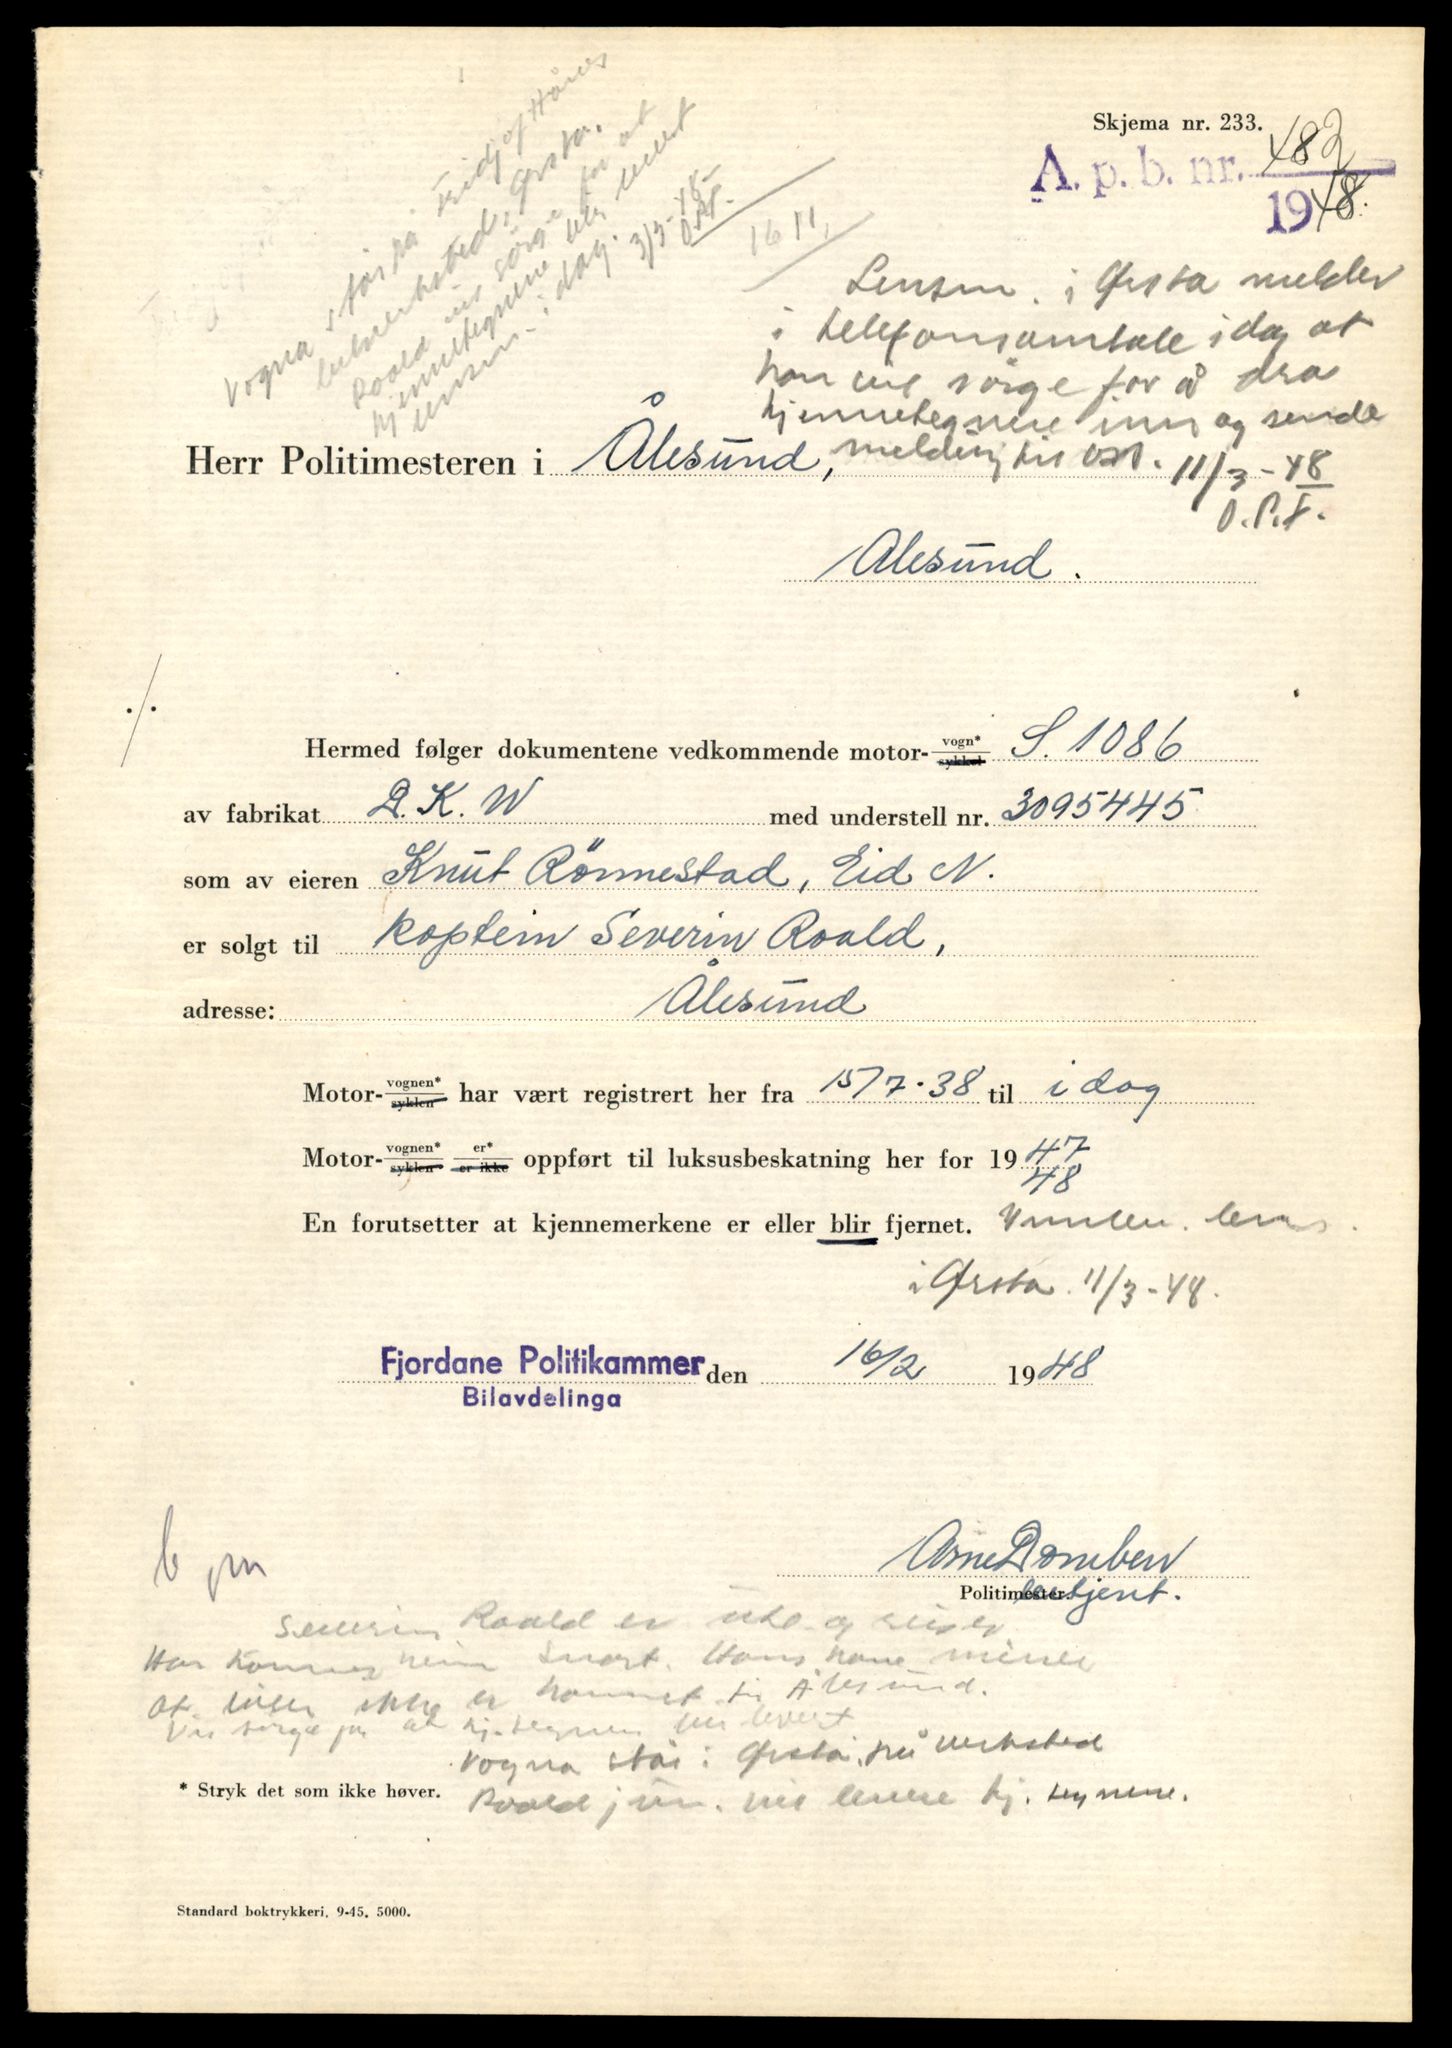 Skjema nr. 233.
A. p. b. nr. 482
1948.
Vogna står på Fridjof Hånes
verksted, Ørsta.
Roald vil sørge for at
kjennetegnene blir levert
lensm. i dag. 3/3-48
O.P.F.
1611,
Lensm. i Ørsta melder
i telefonsamtale idag at
han vil sørge for å dra
kjennetegnene inn og sende
melding hit
11/3-48
O.P.F.
Herr Politimesteren i Ålesund,
Ålesund.
./.
Hermed følger dokumentene vedkommende motor-vogn*/sykkel S. 1086
av fabrikat D.K.W med understell nr. 3095445
som av eieren Knut Rönnestad, Eid N.
er solgt til kaptein Severin Roald,
adresse: Ålesund
Motor-vognen*/syklen har vært registrert her fra 15/7-38 til i dag
Motor-vognen*/syklen er*/er ikke oppført til luksusbeskatning her for 1947
48
En forutsetter at kjennemerkene er eller blir fjernet. lens.
i Ørsta 11/3-48.
Fjordane Politikammer den 16/2 1948
Bilavdelinga
Arne
Politimester. betjent.
Severin Roald er ute og reiser
Han kommer heim snart. Hans kone mener
at bilen ikke er kommet til Ålesund.
Vil sørge for at kj.tegnene blir levert
Vogna står i Ørsta på verksted
Roald jun. vil levere kj. tegnene.
* Stryk det som ikke høver.
Standard boktrykkeri, 9-45. 5000.